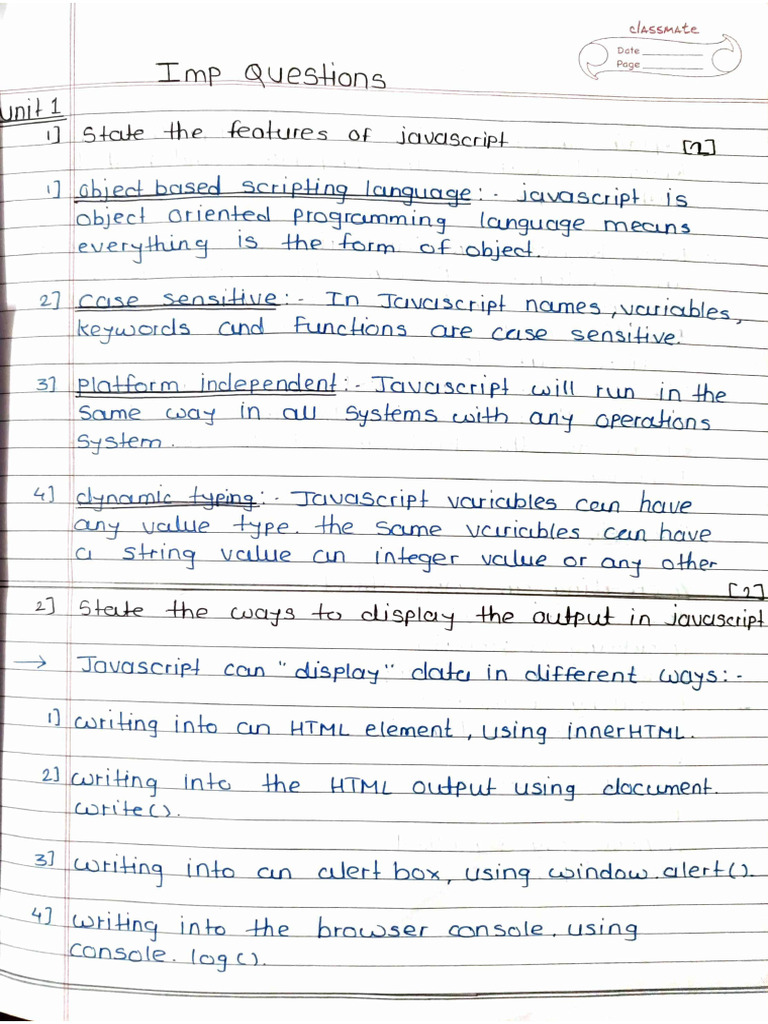 classmate
Date
Page
Imp Questions
Unit 1
1] State the features of javascript [2]
1] object based scripting language:- javascript is
object oriented programming language means
everything is the form of object.
2] case sensitive:- In Javascript names, variables,
keywords and functions are case sensitive.
3] platform independent:- Javascript will run in the
same way in all systems with any operations
system.
4] dynamic typing:- Javascript variables can have
any value type. the same variables can have
a string value an integer value or any other
[2]
2] State the ways to display the output in javascript
→ Javascript can "display" data in different ways:-
1] writing into an HTML element, using innerHTML.
2] writing into the HTML output using document.
write().
3] writing into an alert box, using window.alert().
4] writing into the browser console, using
console.log().